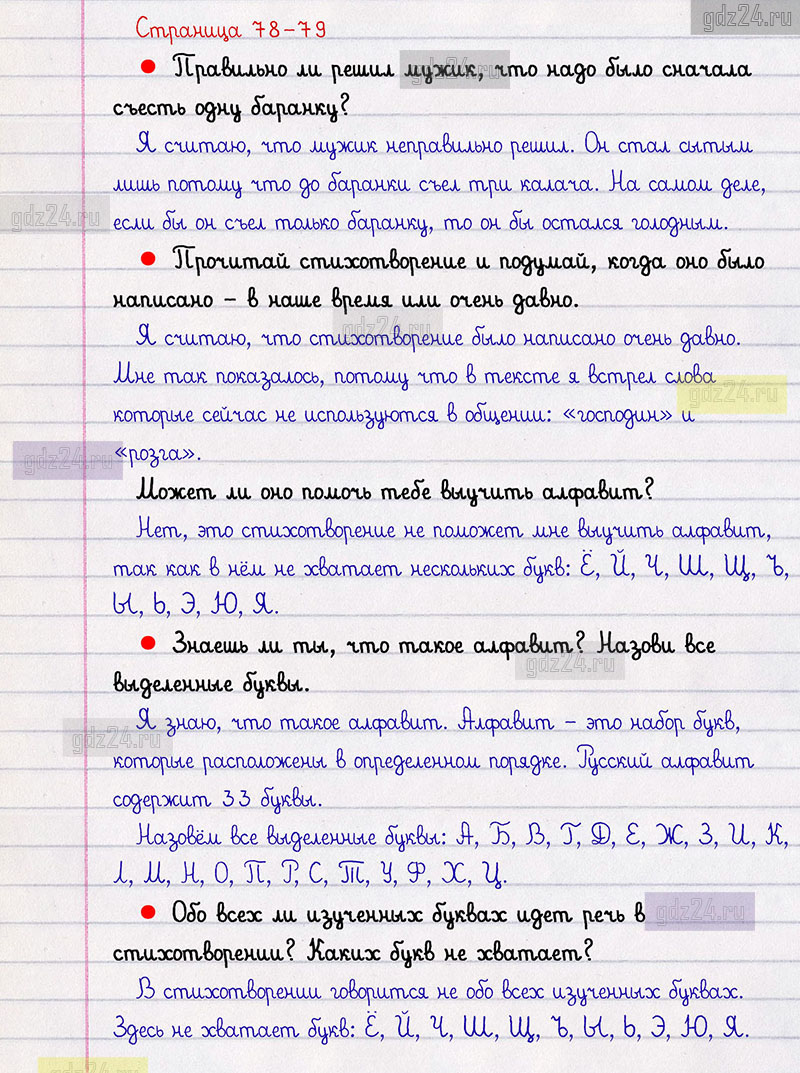 Страница 78-79
gdz24.ru
Правильно ли решил мужик, что надо было сначала
gdz24.ru
съесть одну баранку?
Я считаю, что мужик неправильно решил. Он стал сытым
лишь потому что до баранки съел три калача. На самом деле,
gdz24.ru
если бы он съел только баранку, то он бы остался голодным.
Прочитай стихотворение и подумай, когда оно было
написано – в наше время или очень давно.
gdz24.ru
Я считаю, что стихотворение было написано очень давно.
Мне так показалось, потому что в тексте я встрел слова
gdz24.ru
которые сейчас не используются в общении: «господин» и
gdz24.ru
«розга».
Может ли оно помочь тебе выучить алфавит?
Нет, это стихотворение не поможет мне выучить алфавит,
так как в нём не хватает нескольких букв: Ё, Й, Ч, Ш, Щ, Ъ,
Ы, Ь, Э, Ю, Я.
Знаешь ли ты, что такое алфавит? Назови все
gdz24.ru
выделенные буквы.
Я знаю, что такое алфавит. Алфавит – это набор букв,
gdz24.ru
которые расположены в определенном порядке. Русский алфавит
содержит 33 буквы.
Назовём все выделенные буквы: А, Б, В, Г, Д, Е, Ж, З, И, К,
Л, М, Н, О, П, Р, С, Т, У, Ф, Х, Ц.
Обо всех ли изученных буквах идет речь в
gdz24.ru
стихотворении? Каких букв не хватает?
В стихотворении говорится не обо всех изученных буквах.
Здесь не хватает букв: Ё, Й, Ч, Ш, Щ, Ъ, Ы, Ь, Э, Ю, Я.
gdz24.ru